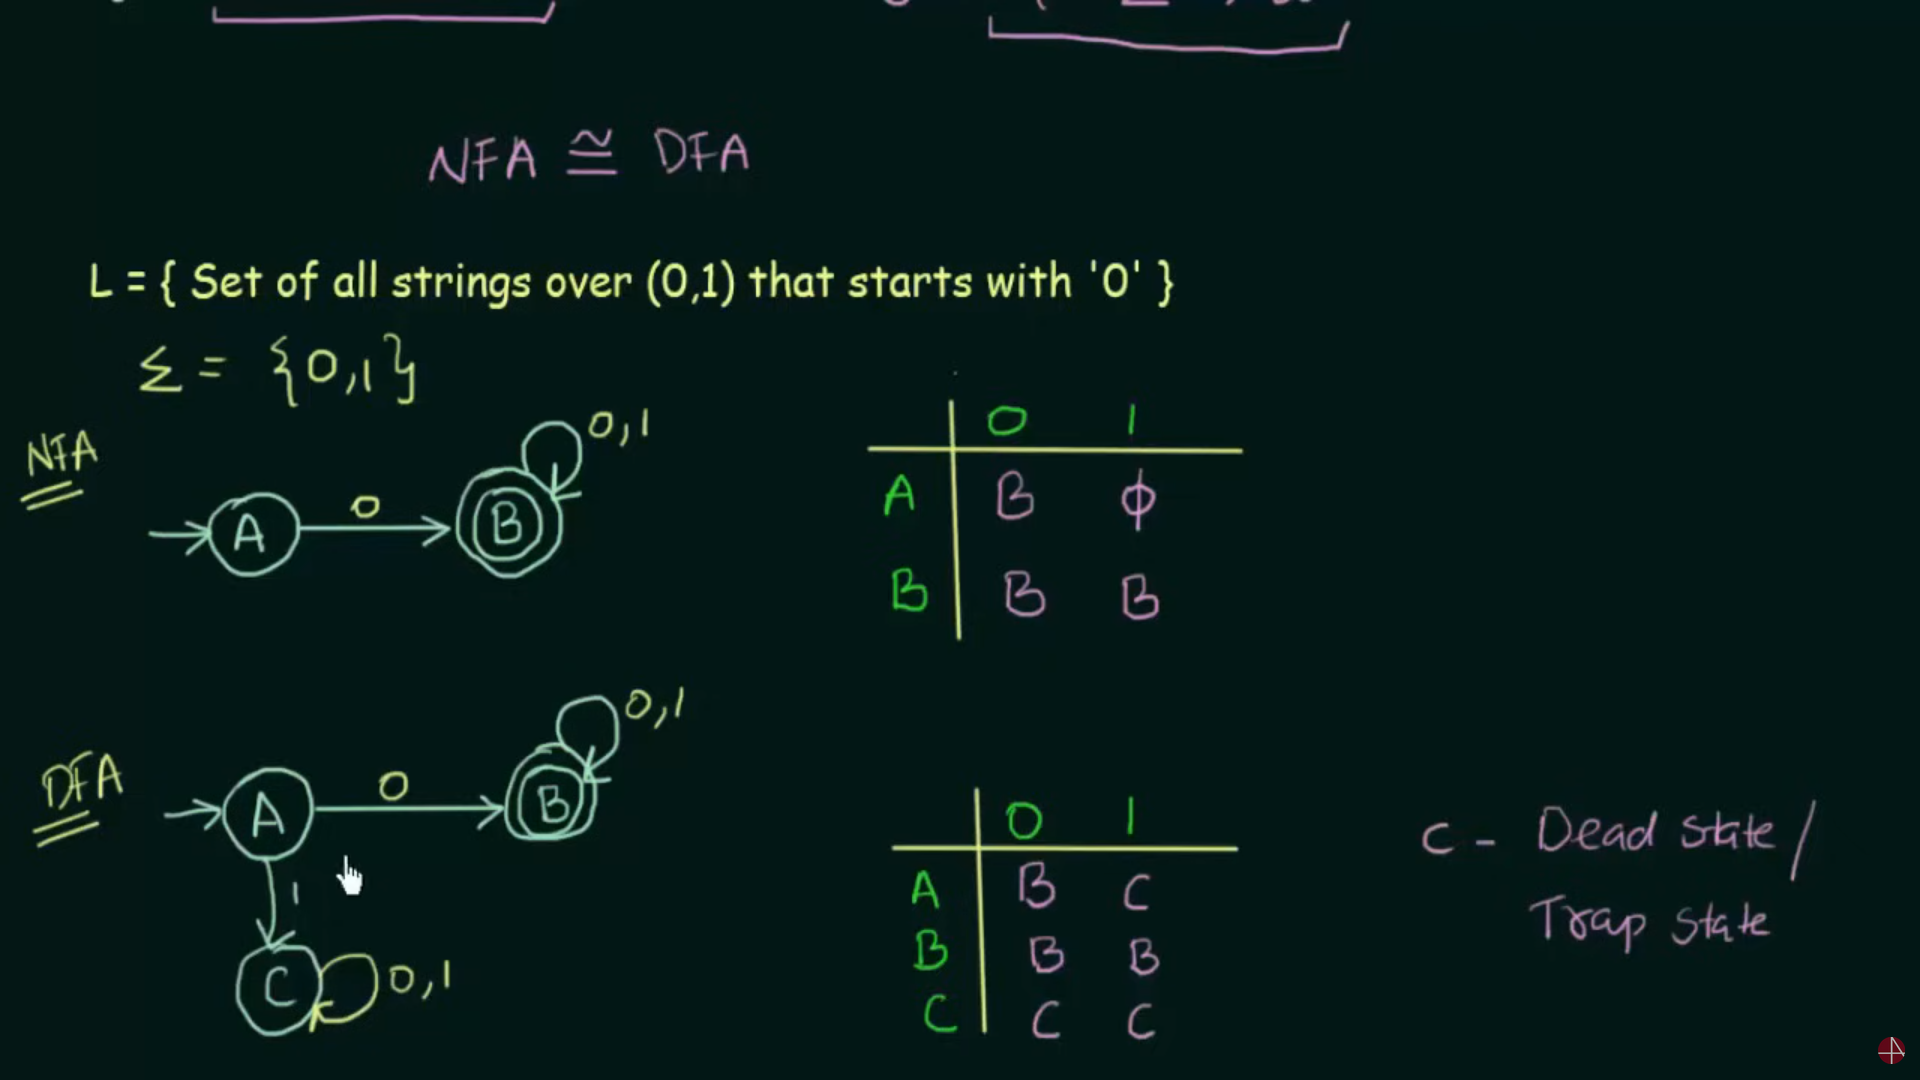 NFA ≅ DFA
L = { Set of all strings over (0,1) that starts with '0' }
Σ = {0,1}
NFA
0,1
A 0 B
0 1
A B ϕ
B B B
DFA
0,1
A 0 B
1
C 0,1
0 1
A B C
B B B
C C C
C - Dead state /
Trap state